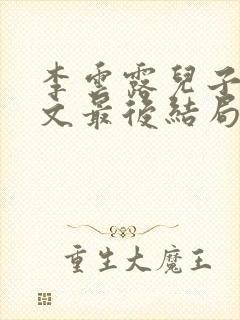 李雲露兒子
文最後結局
重生大魔王